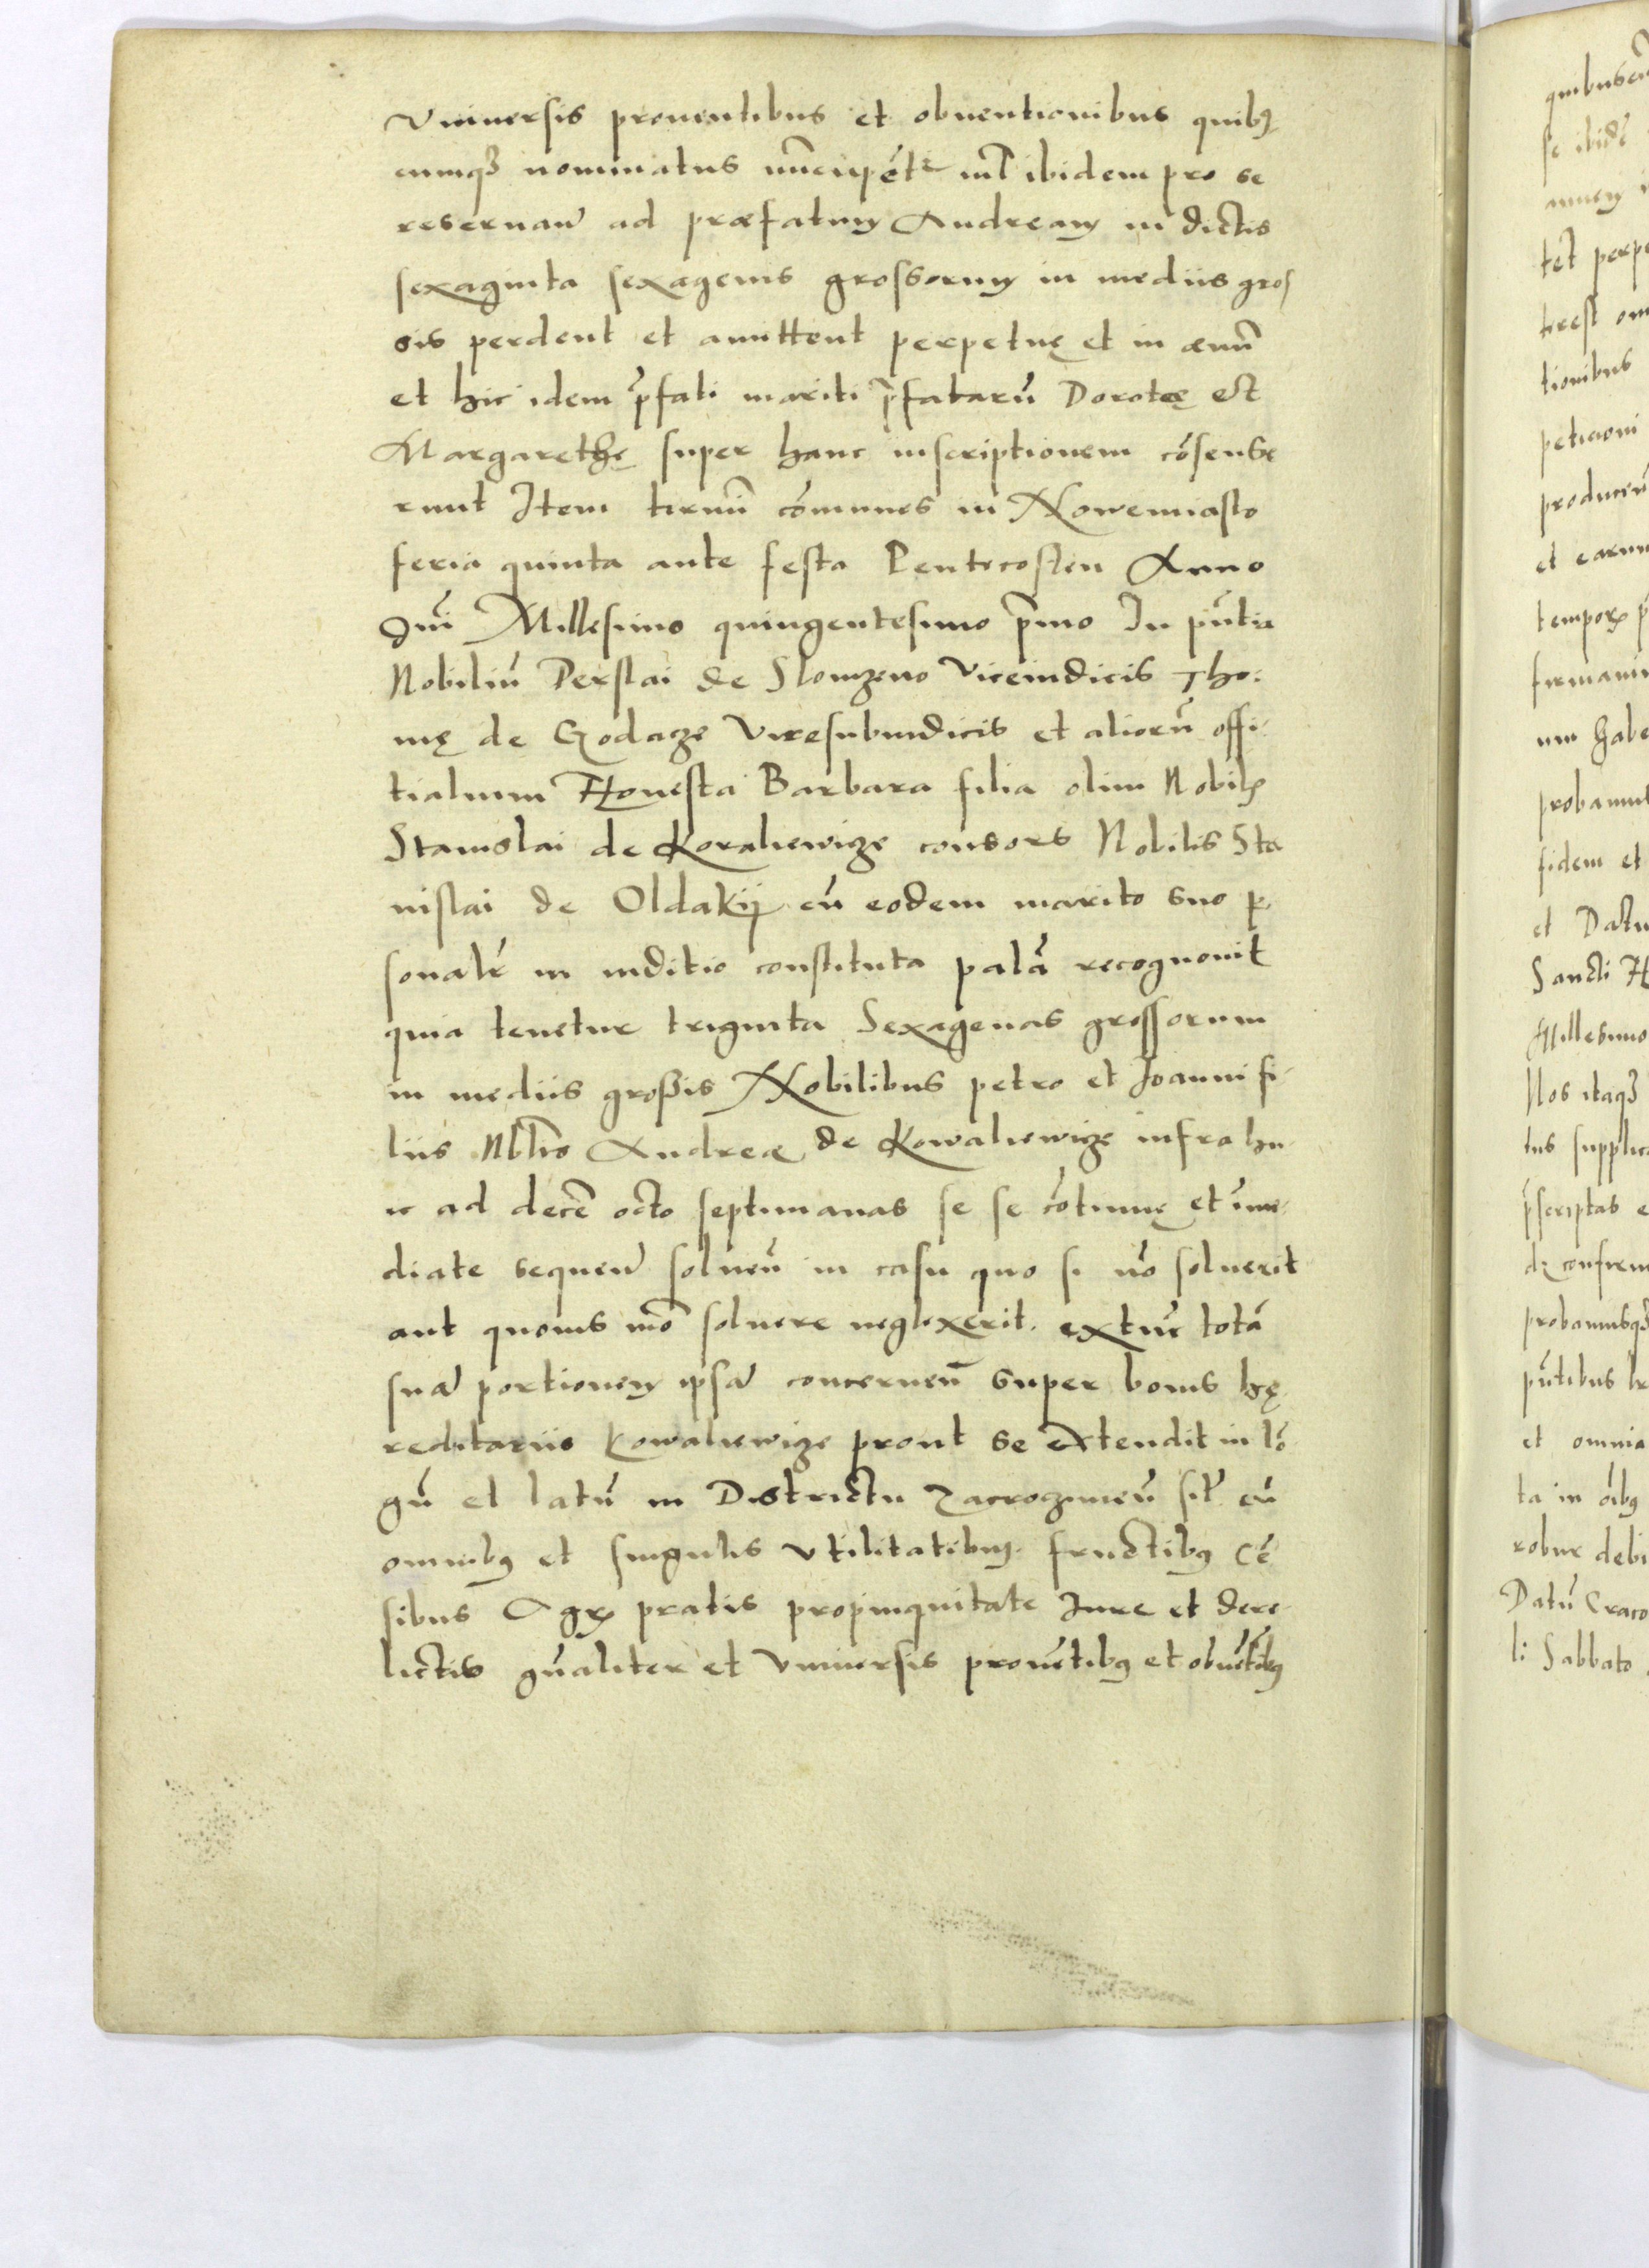 Vniuersis prouentibus et obuentionibus quibꝫ
cumqꝫ nominatus nũcupẽtr nil ibidem pro se
reseruañ ad præfatum Andream in dictis
sexaginta sexagenis grossorum in mediis gros
sis perdent et amittent perpetuę et in æuũ
et hic idem p̃fati mariti p̃fatarũ Dorotee et
Margarethę super hanc inscriptionem cõsense
runt Item termĩ cõmunes in Nowemiasto
feria quinta ante festa Pentecosten Anno
dñi Millesimo quingentesimo p̃mo In pñtia
Nobiliũ Perslai de Slomzeno Viceiudicis Tho:
mę de Godacze Vicesubiudicis et aliorũ offi
tialium Honesta Barbara filia olim Nobilꝭ
Stanislai de Koraliewicze consors Nobilis Sta
nislai de Oldakij cũ eodem marito suo ꝑ
sonalr̃ in iuditio constituta palã recognouit
quia tenetur triginta Sexagenas grossorum
in mediis großis Nobilibus petro et Joanni fi
liis Nblis Andreæ de Kowaliewicze infra hu
c ad decẽ octo septimanas se se cõtinuę et ĩme
diate sequeñ solueñ in casu quo si nõ soluerit
aut quouis mõ soluere neglexerit. extũc totã
suã portionem ipsã concerneñ super bonis hę
reditariis Kowaliewicze prout se extendit in lõ
gũ et latũ in Districtu Zacrozimeñ sit̃ cũ
omnibꝫ et singulis vtilitatibus fructibꝫ cẽ
sibus Agrꝭ pratis propinquitate Iure et dere
lictis gñaliter et Vniuersis prouẽtibꝫ et obuẽtõibꝫ
quibuscũ
se ibidẽ
annem
tet perpe
om
tionibus
peticioni
producen
et earum
temporꝭ
firmami
um habe
probamus
fidem et
et Datu
Sancti H
Millesimo
Nos itaqꝫ
tus supplica
p̃scriptas e
confirm
probamusqꝫ
pñtibus
et omnia
ta in oĩbꝫ
robur debi
Datũ Craco
li Sabbato